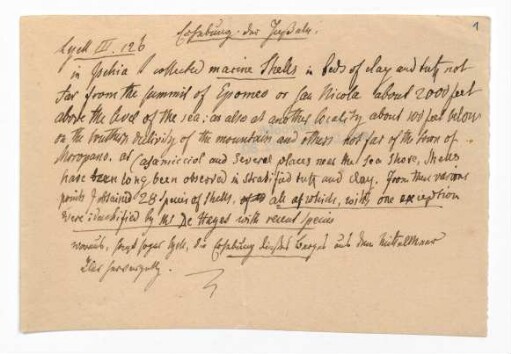 Erhebung der Inseln.
1
Lyell III. 126
in Ischia I collected marine Shells in beds of clay and tuff, not
far from the summit of Epomeo or San Nicola about 2000 feet
above the level of the sea; as also at another locality about 100 feet below
on the southern declivity of the mountain and others not far of the town of
Moropano. at Casamicciol and several places near the sea shore, shells
have been long been observed in stratified tuff and clay. From these various
points I obtained 28 Species of Shells, all of which, with one exception
were identified by Mr De Hayes with recent species
sagt Lyell, die Erhebung dieses Berges aus dem Mittelmeer